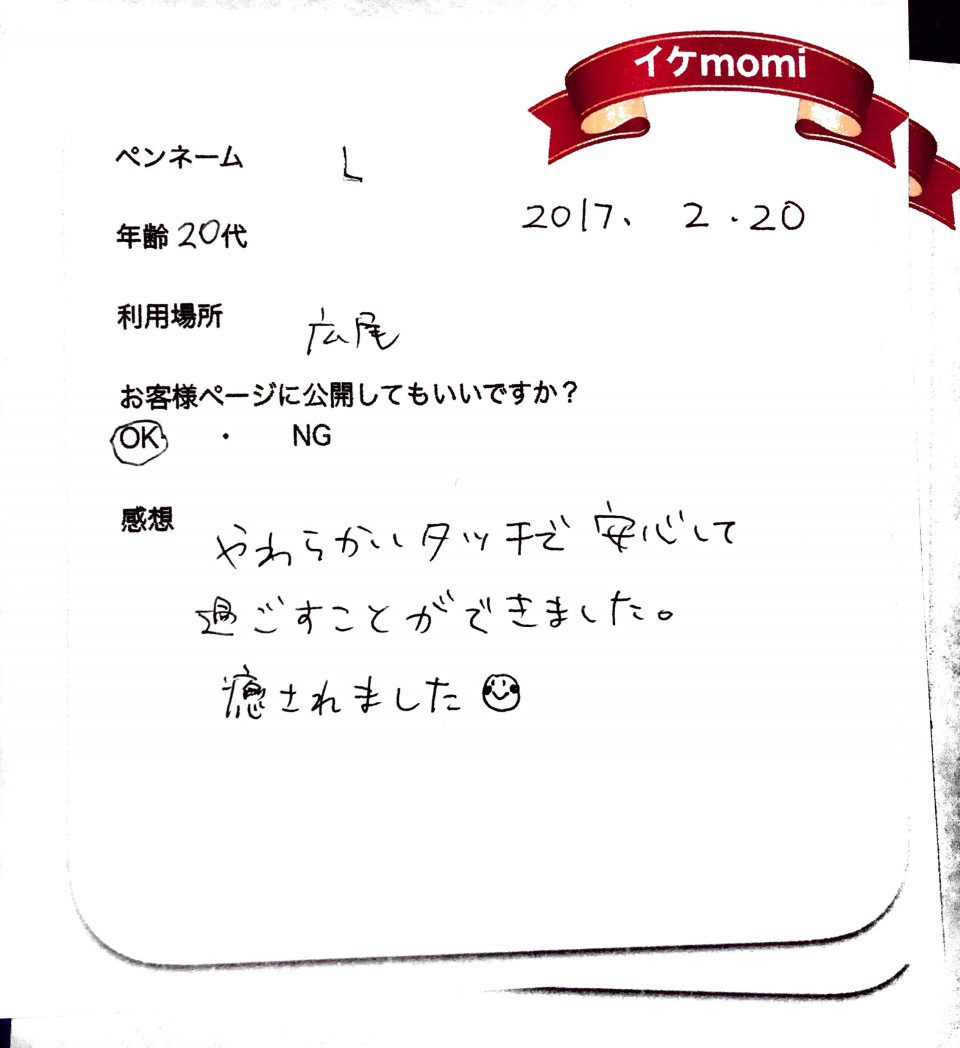 イケmomi
ペンネーム L
2017、 2.20
年齢 20代
利用場所 広尾
お客様ページに公開してもいいですか？
OK ・ NG
感想
やわらかいタッチで安心して
過ごすことができました。
癒されました